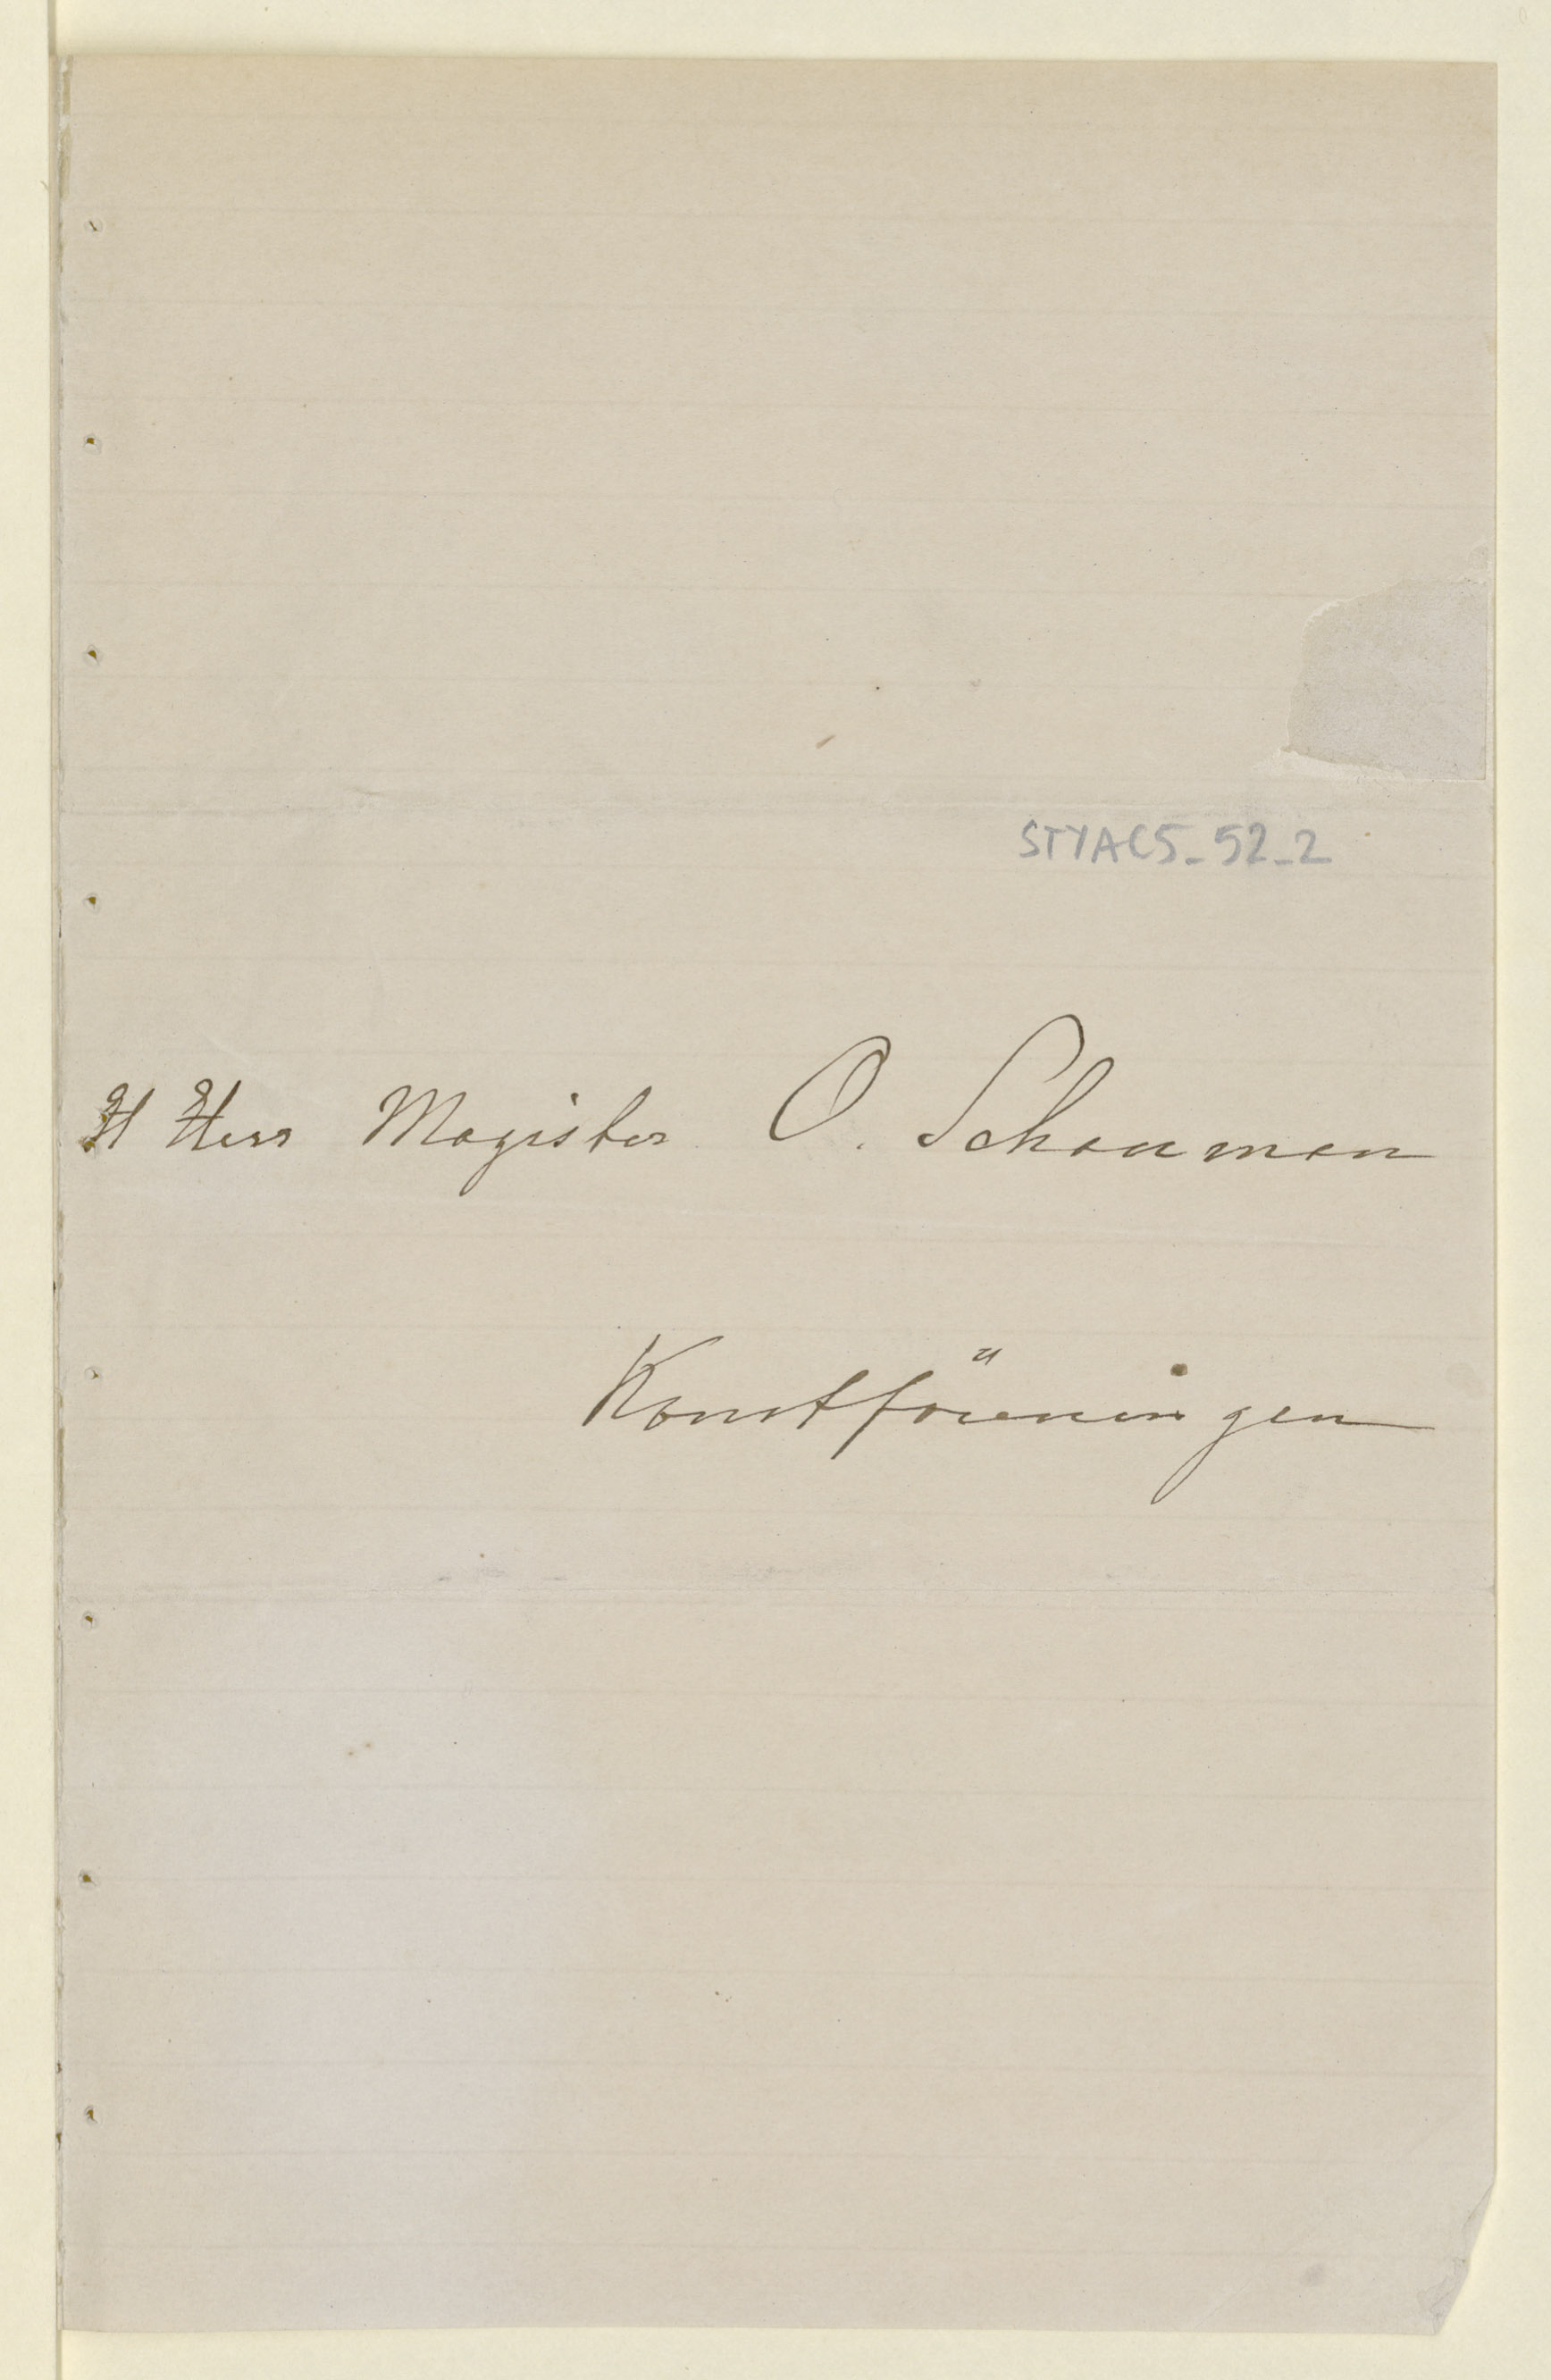 STYAC5_52_2
H Herr Magister O. Schauman
Konstföreningen